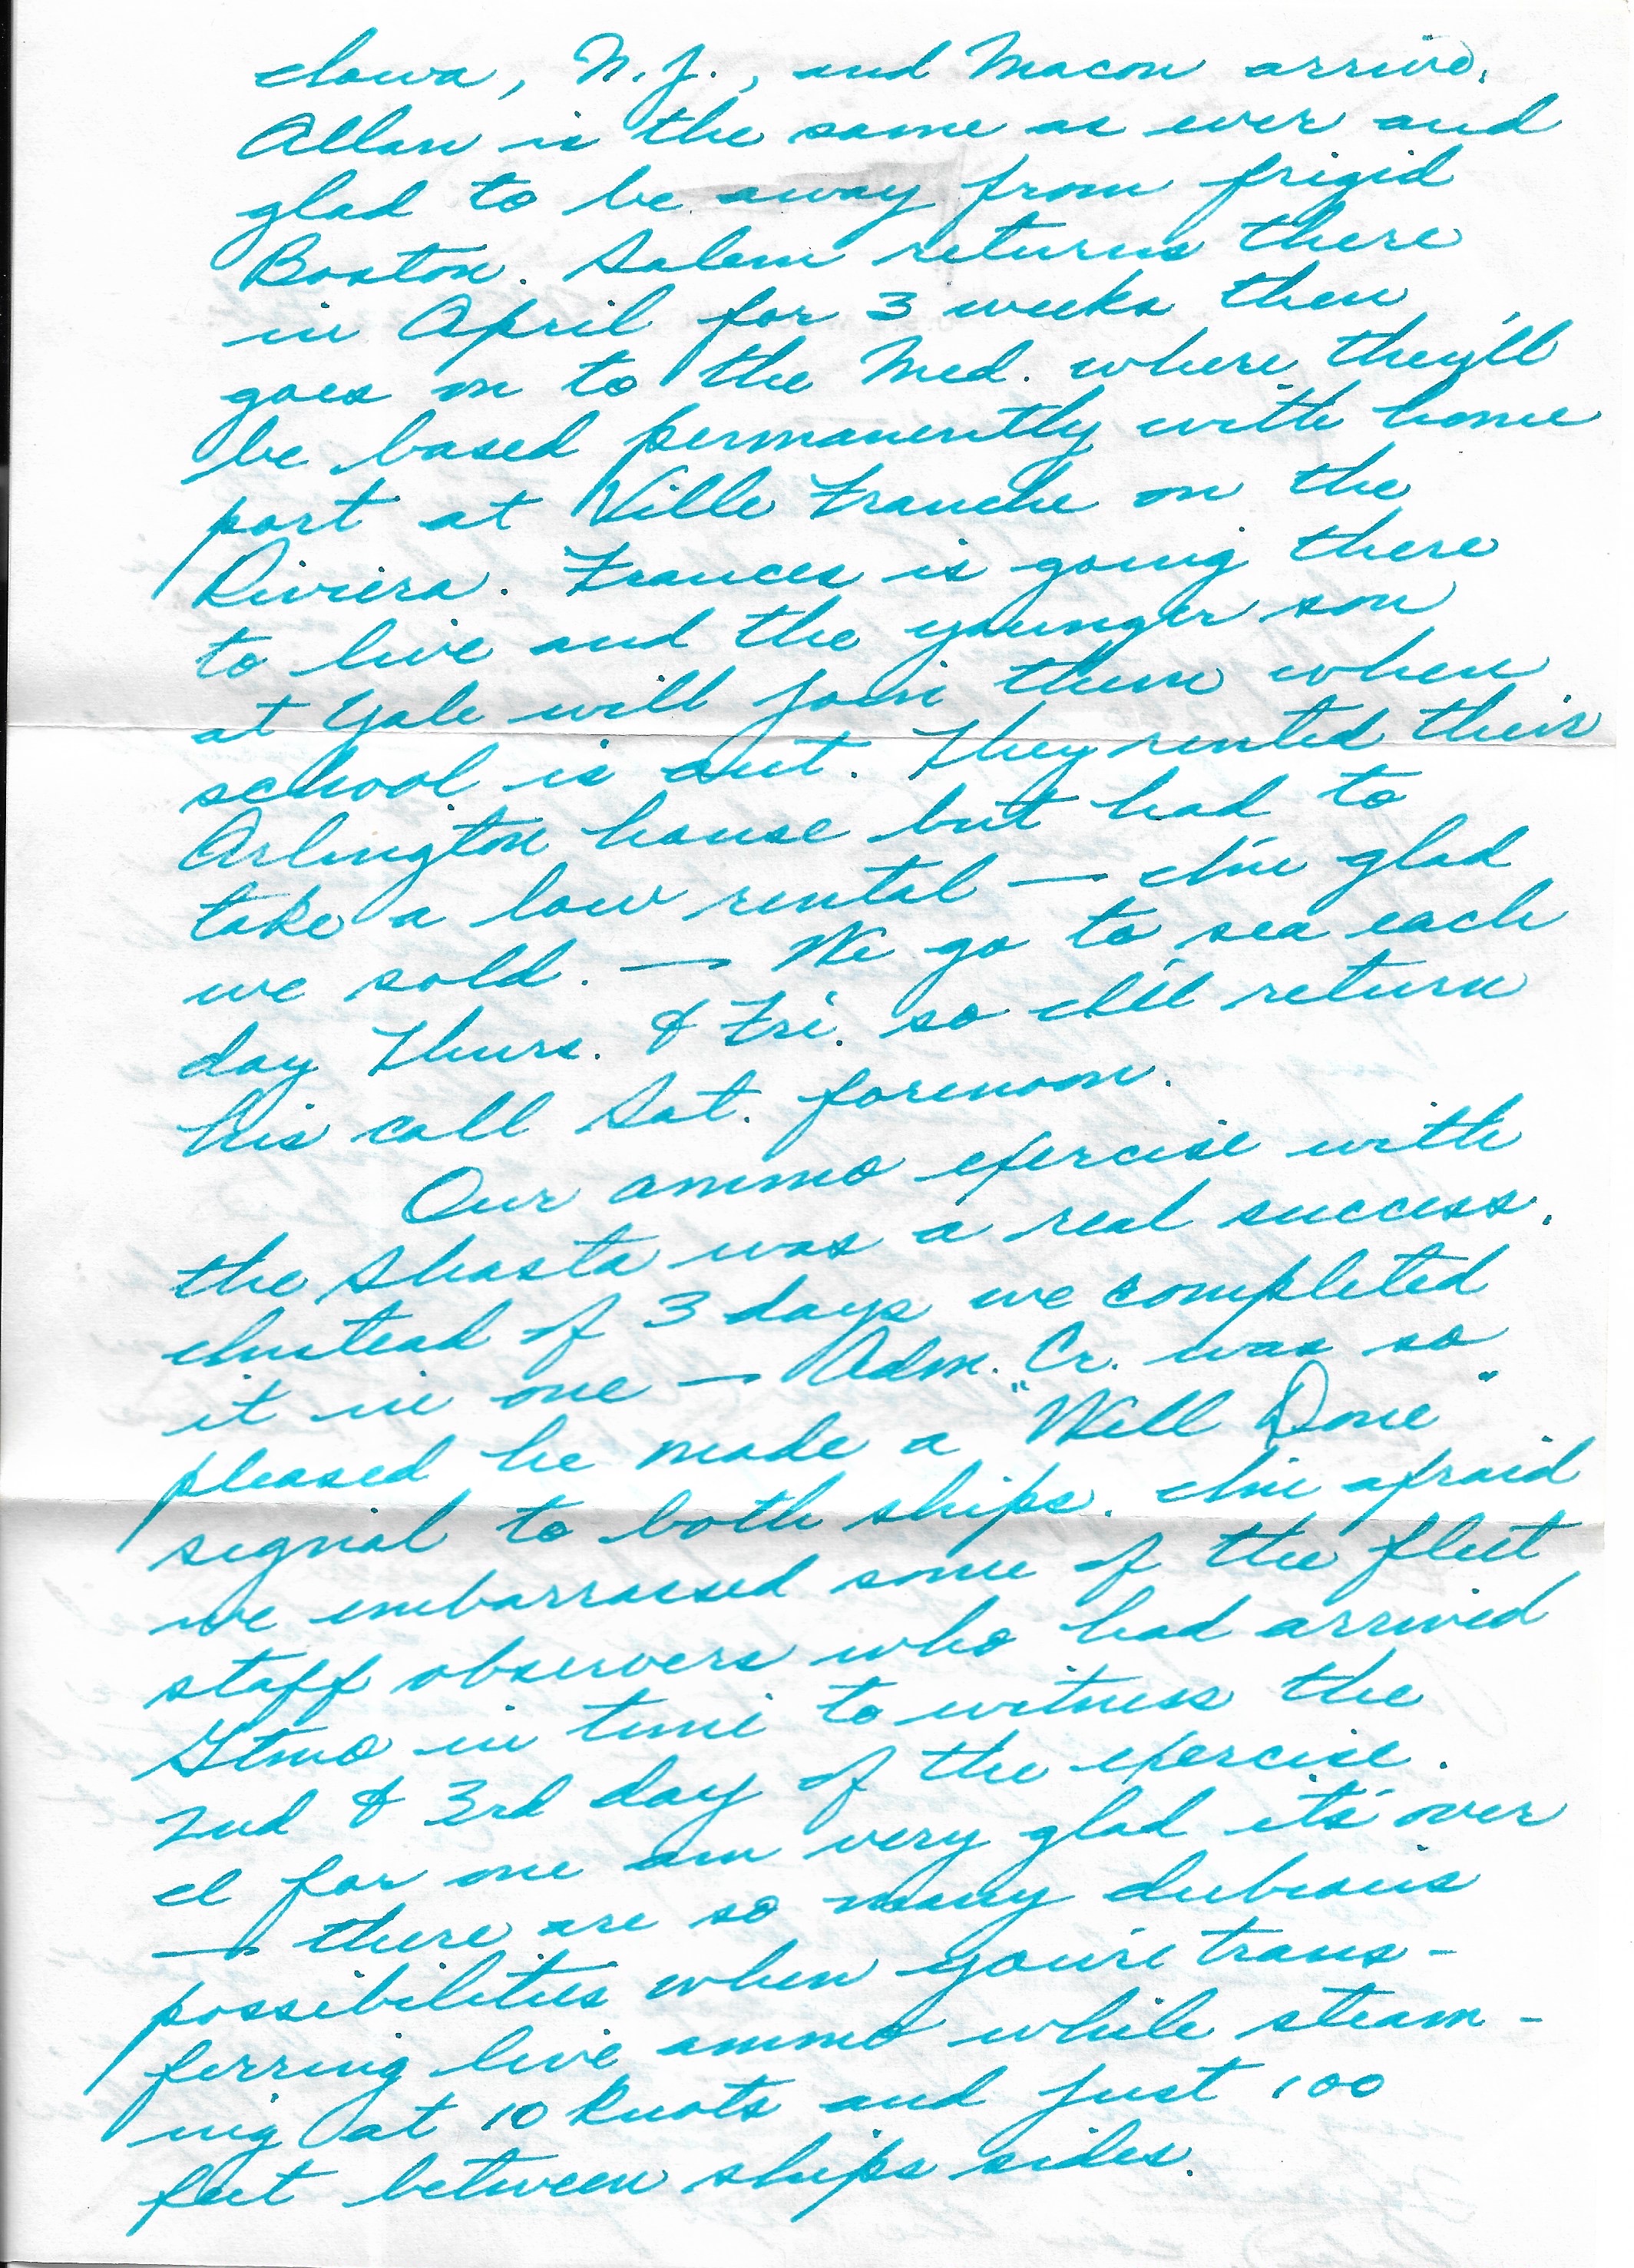 Iowa, N.J., and Macon arrive.
Allan is the same as ever and
glad to be away from frigid
Boston. Salem returns there
in April for 3 weeks then
goes on to the Med. where they'll
be based permanently with home
port at Ville Franche on the
Riviera. Frances is going there
to live and the younger son
at Yale will join them when
school is out. They rented their
Arlington house but had to
take a low rental — I'm glad
we sold. — We go to sea each
day Thurs. & Fri. so I'll return
his call Sat. forenoon.
Our ammo exercise with
the Shasta was a real success.
Instead of 3 days we completed
it in one — Adm. Cr. was so
pleased he made a "Well Done"
signal to both ships. I'm afraid
we embarrassed some of the fleet
staff observers who had arrived
Gtmo in time to witness the
2nd & 3rd day of the exercise.
I for one am very glad it's over
— there are so many dubious
possibilities when you're trans-
ferring live ammo while steam-
ing at 10 knots and just 100
feet between ships sides.